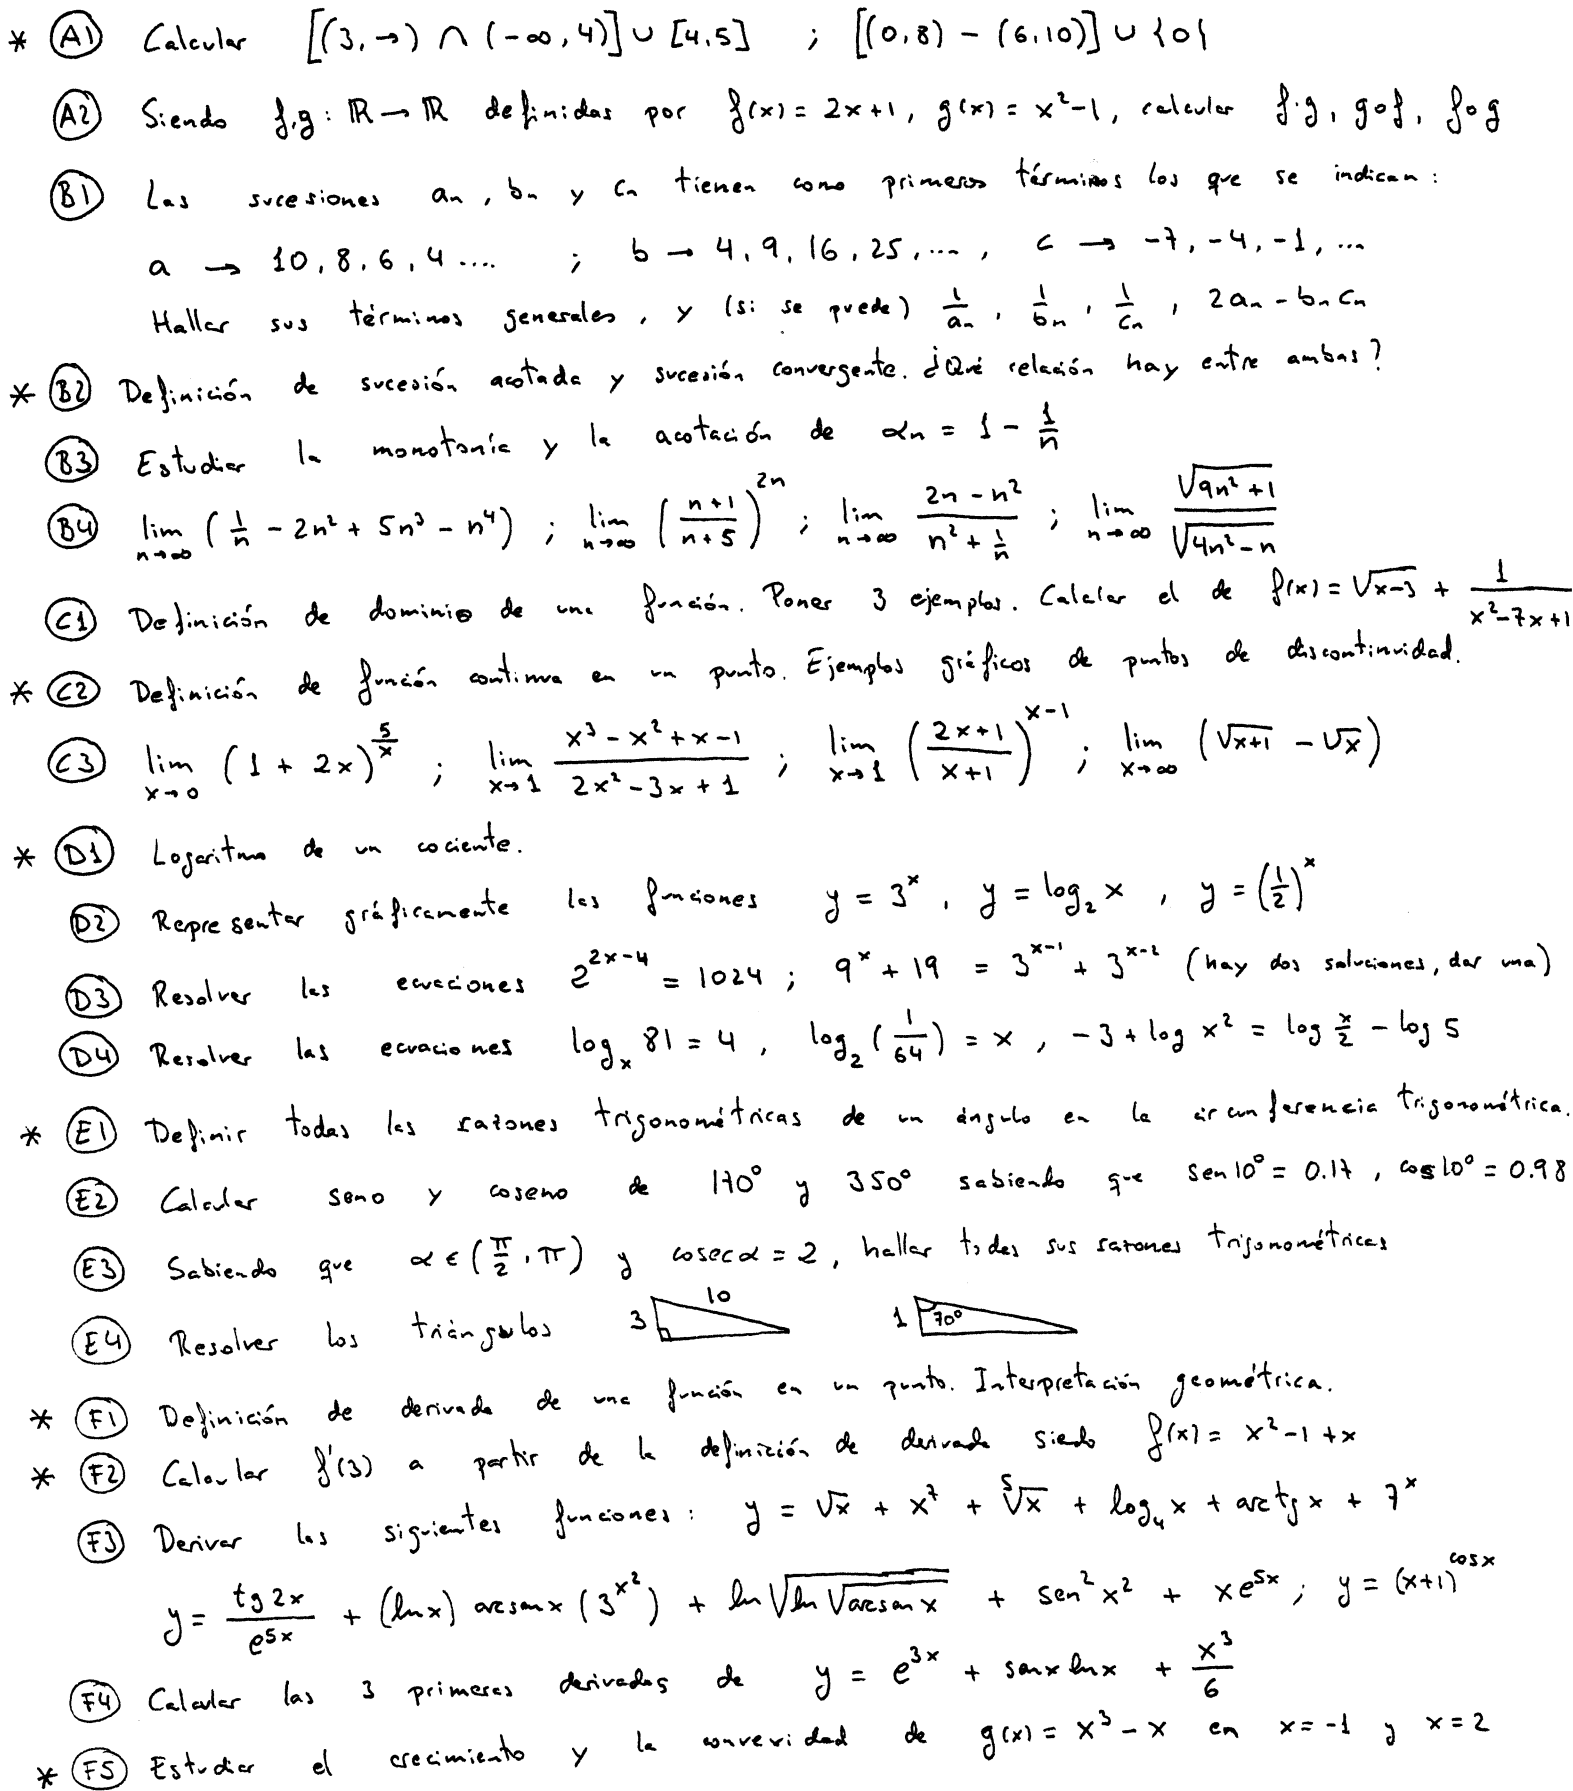 * (A1) Calcular [(3, →) ∩ (-∞, 4)] ∪ [4,5] ; [(0,8) - (6,10)] ∪ {0}
(A2) Siendo f,g : ℝ → ℝ definidas por f(x) = 2x+1, g(x) = x²-1, calcular f·g, g∘f, f∘g
(B1) Las sucesiones aₙ, bₙ y cₙ tienen como primeros términos los que se indican :
a → 10, 8, 6, 4 .... ; b → 4, 9, 16, 25, ..., c → -7, -4, -1, ...
Hallar sus términos generales, y (si se puede) 1/aₙ, 1/bₙ, 1/cₙ, 2aₙ - bₙcₙ
* (B2) Definición de sucesión acotada y sucesión convergente. ¿Qué relación hay entre ambas?
(B3) Estudiar la monotonía y la acotación de αₙ = 1 - 1/n
(B4) lim n→∞ (1/n - 2n² + 5n³ - n⁴) ; lim n→∞ ((n+1)/(n+5))^(2n) ; lim n→∞ (2n - n²)/(n² + 1/n) ; lim n→∞ √(9n²+1)/√(4n²-n)
(C1) Definición de dominio de una función. Poner 3 ejemplos. Calcular el de f(x) = √(x-3) + 1/(x²-7x+1)
* (C2) Definición de función continua en un punto. Ejemplos gráficos de puntos de discontinuidad.
(C3) lim x→0 (1 + 2x)^(5/x) ; lim x→1 (x³ - x² + x - 1)/(2x² - 3x + 1) ; lim x→1 ((2x+1)/(x+1))^(x-1) ; lim x→∞ (√(x+1) - √x)
* (D1) Logaritmo de un cociente.
(D2) Representar gráficamente las funciones y = 3^x, y = log₂ x, y = (1/2)^x
(D3) Resolver las ecuaciones 2^(2x-4) = 1024 ; 9^x + 19 = 3^(x-1) + 3^(x-2) (hay dos soluciones, dar una)
(D4) Resolver las ecuaciones logₓ 81 = 4, log₂ (1/64) = x, -3 + log x² = log x/2 - log 5
* (E1) Definir todas las razones trigonométricas de un ángulo en la circunferencia trigonométrica.
(E2) Calcular seno y coseno de 170° y 350° sabiendo que sen 10° = 0.17, cos 10° = 0.98
(E3) Sabiendo que α ∈ (π/2, π) y cosec α = 2, hallar todas sus razones trigonométricas
(E4) Resolver los triángulos 3 10 1 70°
* (F1) Definición de derivada de una función en un punto. Interpretación geométrica.
* (F2) Calcular f'(3) a partir de la definición de derivada siendo f(x) = x² - 1 + x
(F3) Derivar las siguientes funciones : y = √x + x⁷ + ⁵√x + log₄ x + arctg x + 7^x
y = tg 2x/e^(5x) + (ln x) arcsen x (3^(x²)) + ln √(ln √(arcsen x)) + sen² x² + x e^(5x) ; y = (x+1)^(cos x)
(F4) Calcular las 3 primeras derivadas de y = e^(3x) + sen x ln x + x³/6
* (F5) Estudiar el crecimiento y la convexidad de g(x) = x³ - x en x = -1 y x = 2